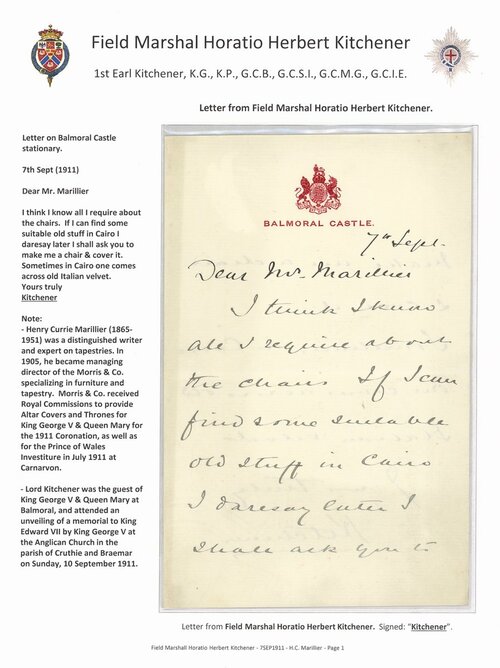 Field Marshal Horatio Herbert Kitchener
1st Earl Kitchener, K.G., K.P., G.C.B., G.C.S.I., G.C.M.G., G.C.I.E.
Letter from Field Marshal Horatio Herbert Kitchener.
Letter on Balmoral Castle
stationary.
7th Sept (1911)
Dear Mr. Marillier
I think I know all I require about
the chairs.  If I can find some
suitable old stuff in Cairo I
daresay later I shall ask you to
make me a chair & cover it.
Sometimes in Cairo one comes
across old Italian velvet.
Yours truly
Kitchener
Note:
- Henry Currie Marillier (1865-
1951) was a distinguished writer
and expert on tapestries. In
1905, he became managing
director of the Morris & Co.
specializing in furniture and
tapestry.  Morris & Co. received
Royal Commissions to provide
Altar Covers and Thrones for
King George V & Queen Mary for
the 1911 Coronation, as well as
for the Prince of Wales
Investiture in July 1911 at
Carnarvon.
- Lord Kitchener was the guest of
King George V & Queen Mary at
Balmoral, and attended an
unveiling of a memorial to King
Edward VII by King George V at
the Anglican Church in the
parish of Cruthie and Braemar
on Sunday, 10 September 1911.
BALMORAL CASTLE.
7th Sept.
Dear Mr. Marillier
I think I know
all I require about
the chairs If I can
find some suitable
old stuff in Cairo
I daresay later I
shall ask you to
Letter from Field Marshal Horatio Herbert Kitchener.  Signed: "Kitchener".
Field Marshall Horatio Herbert Kitchener - 7SEP1911 - H.C. Marillier - Page 1